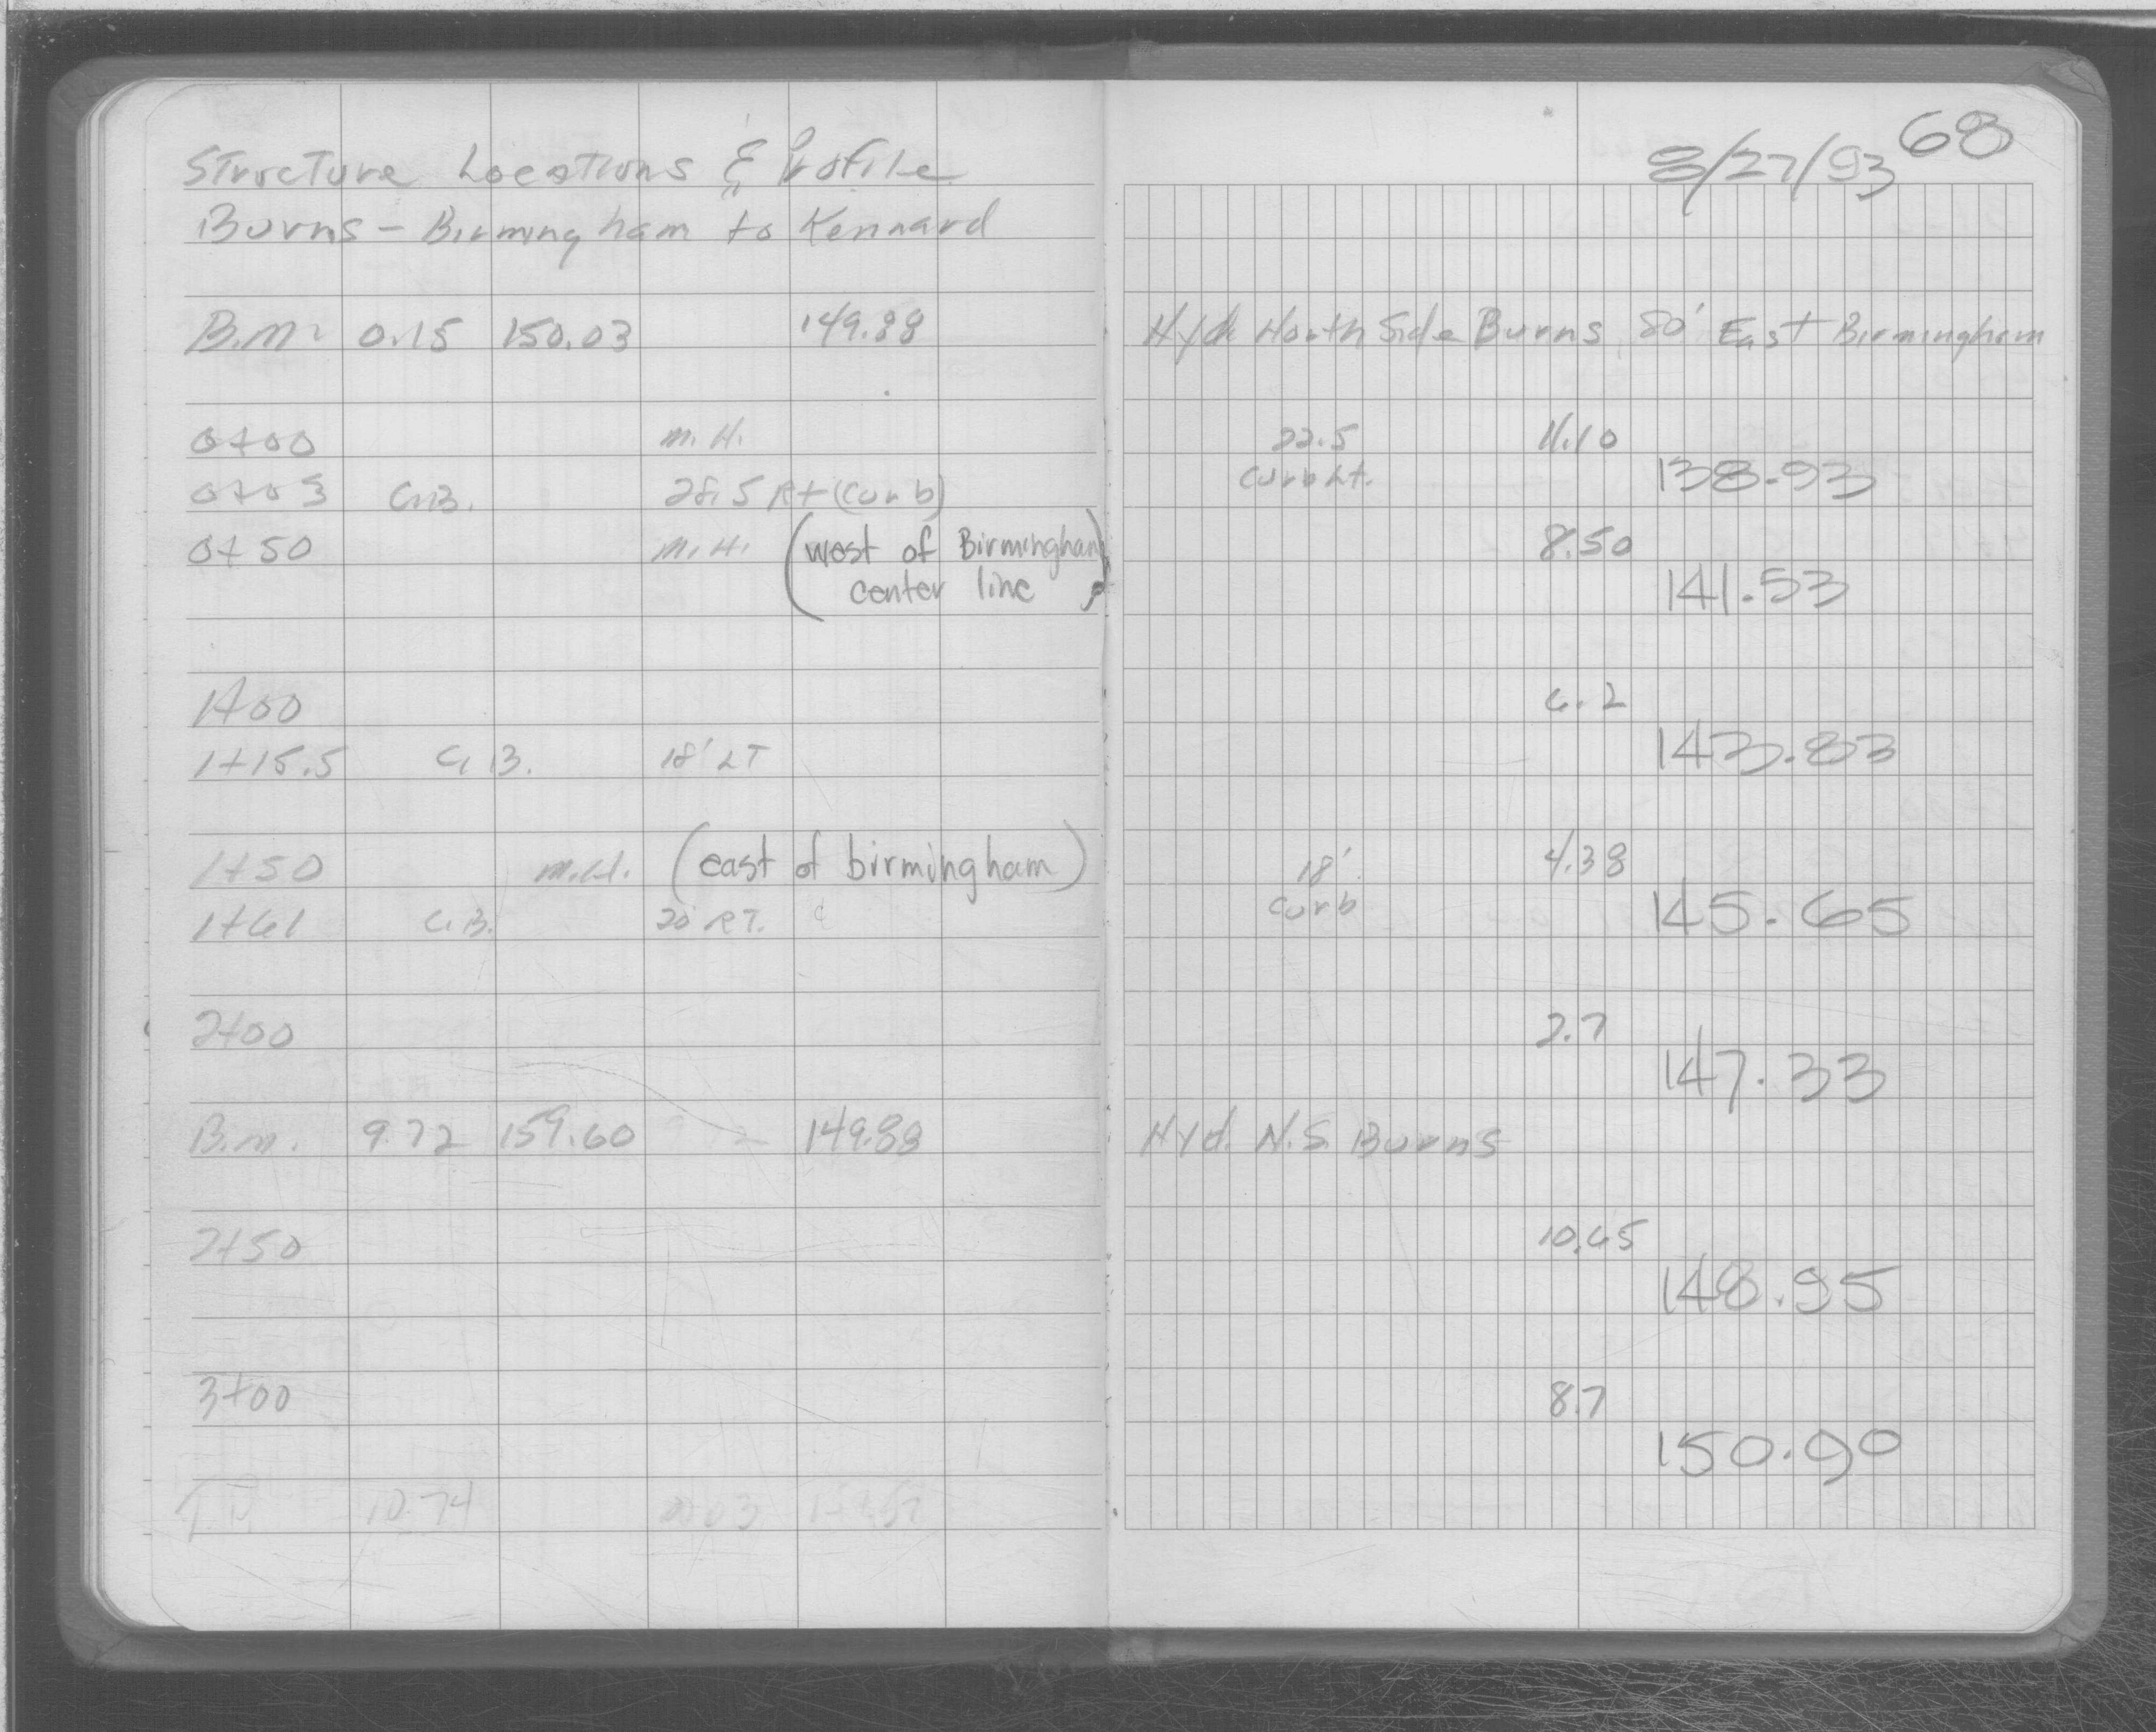 68
8/27/93
Structure Locations & Profile
Burns - Birmingham to Kennard
B.M. 0.15 150.03 149.88 Hyd. North Side Burns, 80' East Birmingham
0+00 M.H. 22.5 11.10
Curb Lt. 138.93
0+03 C.B. 28.5 Rt (curb)
0+50 M.H. (west of Birmingham 8.50
center line) 141.53
1+00 6.2
143.83
1+15.5 C.B. 18' LT
1+50 M.H. (east of birmingham) 18' 4.38
curb 145.65
1+61 C.B. 20 RT.
2+00 2.7
147.33
B.M. 9.72 159.60 149.88 Hyd. N.S. Burns
2+50 10.65
148.95
3+00 8.7
150.90
T.P. 10.74